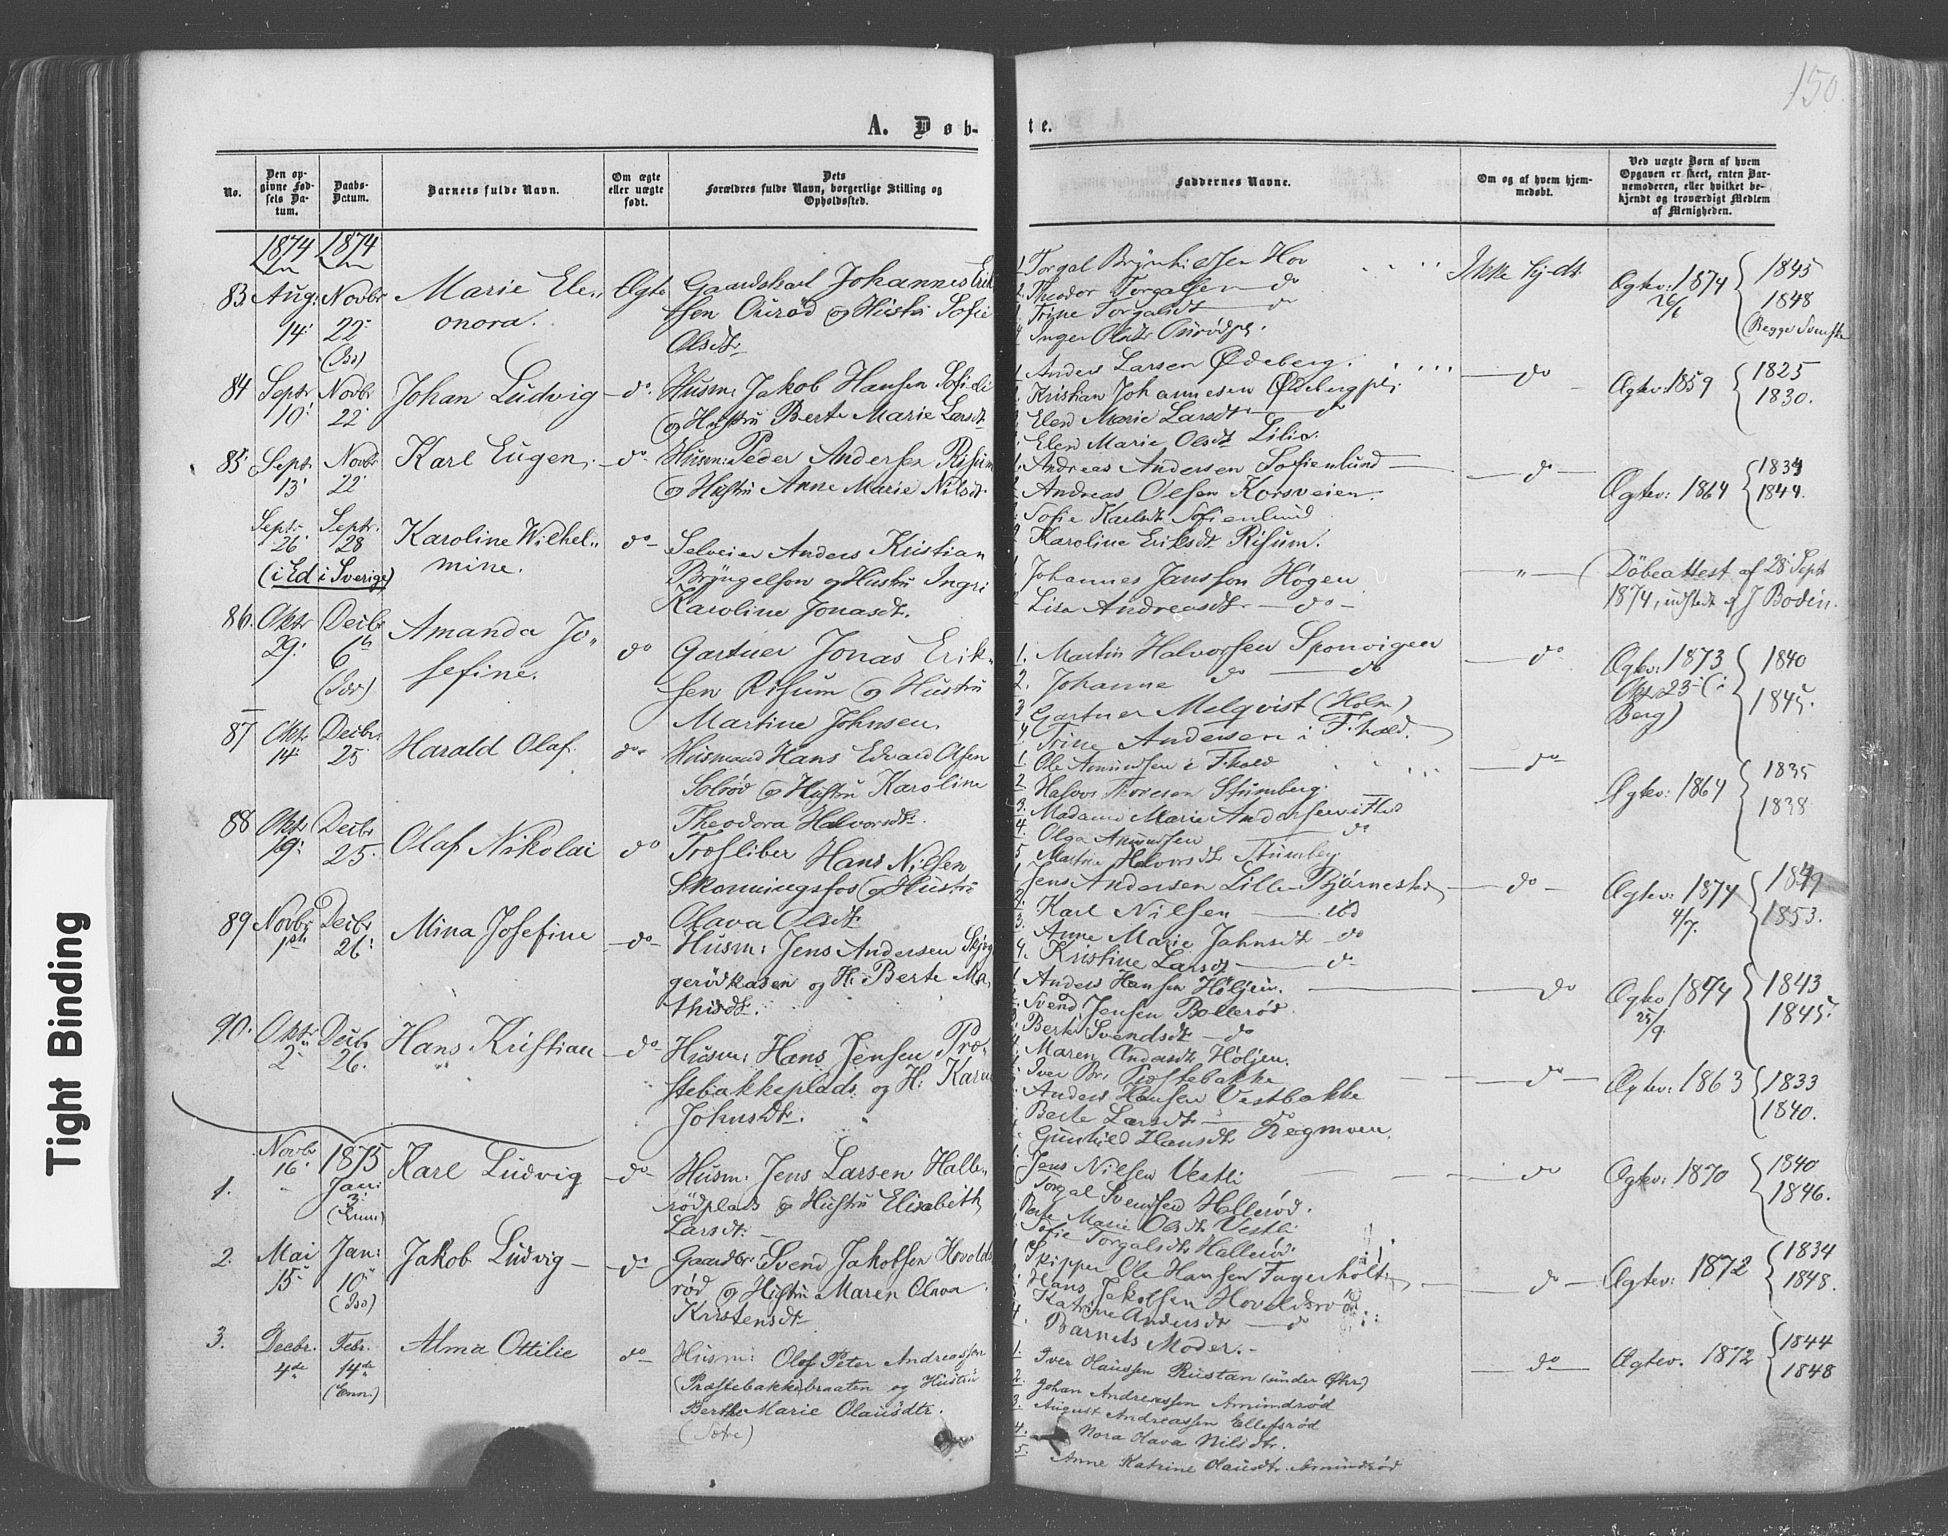 150.
A. Døb-
te.
No.
Den op-
givne Fød-
sels Da-
tum.
Daabs-
Datum.
Barnets fulde Navn.
Om ægte
eller uægte
født.
Dets
Forældres fulde Navn, borgerlige Stilling og
Opholdssted.
Faddernes Navne.
Om og af hvem hjem-
medøbt.
Ved uægte Børn af hvem
Opgaven er skeet, enten Bar-
nemoderen, eller hvilket be-
kjendt og troværdigt Medlem
af Menigheden.
1874 1874
83 Aug: 14' Novbr 22 Marie Ele-
onora.
Ægte Gaardskarl Johannes Erik
sen og Hustru Sofie
Olsdtr
1. Torgal Hov
2. Theodor Torgalsen do
3. Trine Torgalsdt do
4 Inger Olsdtr
Ikke hj-dt.
Ægtev: 1874
26/6
1845
1848
(Begge Svenske
84 Septr 10' Novbr 22 Johan Ludvig do
Husm: Jakob Hansen
og Hustru Berte Marie Larsdt.
1. Anders Larsen Ødeberg.
Kristian Johannesen Ødebergpl;
Elen Marie Larsdt do
Elen Marie Olsdt Lilia.
do
Ægtev: 1859
1825
1830.
85 Septr 13' Novbr 22 Karl Eugen. do
Husm: Peder Andersen Risum
og Hustru Anne Marie Nilsdt.
Andreas Andersen Sofienlund
Andreas Olsen Korsveien
Sofie Karlsdt. Sofienlund
4 Karoline Eriksdt Risum.
do
Ægtev: 1864
1834
1844.
Sept. 26 Septr. 28
(i Ed i Sverige)
Karoline Wilhel-
mine.
do
Selveier Anders Kristian
Bryngelson og Hustru Ingri
Karoline Jonasdt.
Johannes Jansson Högen
Lisa Andreasdt. do
Döbeattest af 28 Sept
1874, udstedt af J Bodin.
86. Oktr 29: Decbr 6te Amanda Jo-
sefine.
do
Gartner Jonas Erik-
sen Risum og Hustru
Martine Johnsen.
1. Martin Halvorsen Sponvigen
2. Johanne do do
3 Gartner Melqvist (Holm)
4 Trine Andersen i F.hald.
do
Ægtev: 1873
Okt. 23 (i
Berg)
1840
1845.
87 Oktr 14 Decbr. 25 Harald Olaf. do
Husmand Hans Edvard Olsen
Solrød og Hustru Karoline
Theodora Halvorsdt.
1 Ole Amundsen i F.hald
2 Halvor Stumberg.
3. Madame Marie Andersen i F.hld
4. Olga Amundsen do
5 Martine Halvorsdt Stumberg
do
Ægtev: 1864
1835
1838
88 Oktr 19: Decbr 25. Olaf Nikolai do
Træsliber Hans Nilsen
Skonningsfos og Hustru
Olava Olsdt.
1 Jens Andersen Lille Bjørnestad
2. Karl Nilsen ibd
3. Anne Marie Jahnsdt do
4. Kristine Larsdt do
do
Ægtev: 1874
4/7.
1849
1853.
89 Novbr 1ste Decbr 26. Mina Josefine do
Husm: Jens Andersen
gerødkasen og H: Berte Ma-
thisdt.
Anders Hansen Höljen.
Svend Jensen Bollerød.
Berte Svendsdt do
Maren Andersdt Höljen.
do
Ægtev 1874
25/9.
1843
1845.
90. Oktr 2 Decbr 26. Hans Kristian do
Husm: Hans Jensen Præ-
stebakkeplads og H: Karen
Johnsdt.
Iver Br; Præstebakke
Anders Hansen Vestbakke
Berte Larsdt do
Gunhild Hansdt. Regnmoen.
do
Ægtev: 1863
1833
1840.
1. Novbr 16 1875
Jan: 3.
Karl Ludvig do
Husm: Jens Larsen Halle-
rødplads og Hustru Elisabeth
Larsdt.
Jens Nilsen Vestli
Torgal Svendsen Hallerød.
Berte Marie Olsdt. Vestli
Sofie Torgalsdt. Hallerød.
do
Ægtev: 1870
1840
1846.
2. Mai 15. Jan: 10. Jakob Ludvig do
Gaardbr: Svend Jakobsen Hovolds
rød og Hustru Maren Olava
Kristensdt.
Skipper Ole Hansen Fagerholt
Hans Jakobsen Hovoldsrød
Katrine Andersdt do
4. Barnets Moder.
do
Ægtev: 1872
1834
1848.
3. Decbr. 4de Febr. 14de Alma Ottilie do
Husm: Olof Peter Andreassen
(Præstebakkebraaten og Hustru
Berthe Marie Olausdtr.
1. Iver Hanssen Rustan (under Øbr)
2. Johan Andreassen Amundrød
3. August Andreassen Ellefsrød
4. Nora Olava Nilsdtr.
5. Anne Katrine Olausdtr. Amundrød
do
Ægtev. 1872
1844
1848
Tight Binding